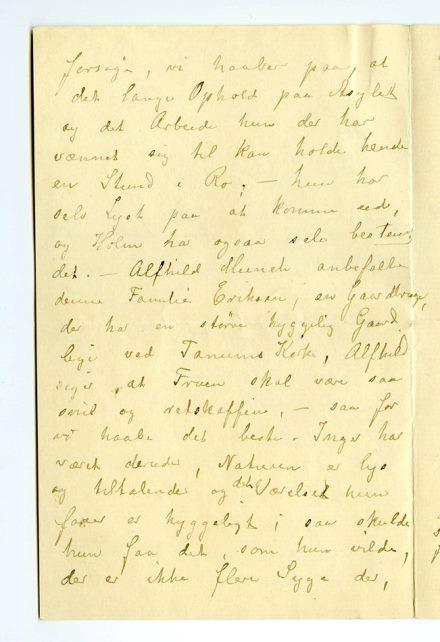 forsøge, vi haaber paa, at
det lange Ophold paa Asylet
og det Arbeide hun der har
vænnet sig til kan holde hende
en Stund i Ro; – hun har
selv Lyst paa at komme ud,
og Holm har ogsaa selv bestemt
det. – Alfhild Munch anbefalte
denne Familie Eriksen, en Gaardbruger,
der har en større hyggelig Gaard
lige ved Tanums Kirke, Alfhild
siger, at Fruen skal være saa
snil og retskaffen, – saa faar
vi haabe det beste. Inger har
været derude, Naturen er lys
og tiltalende og det Værelset hun
faaer er hyggeligt; saa skulde
hun faa det, som hun vilde,
der er ikke flere Syge der,